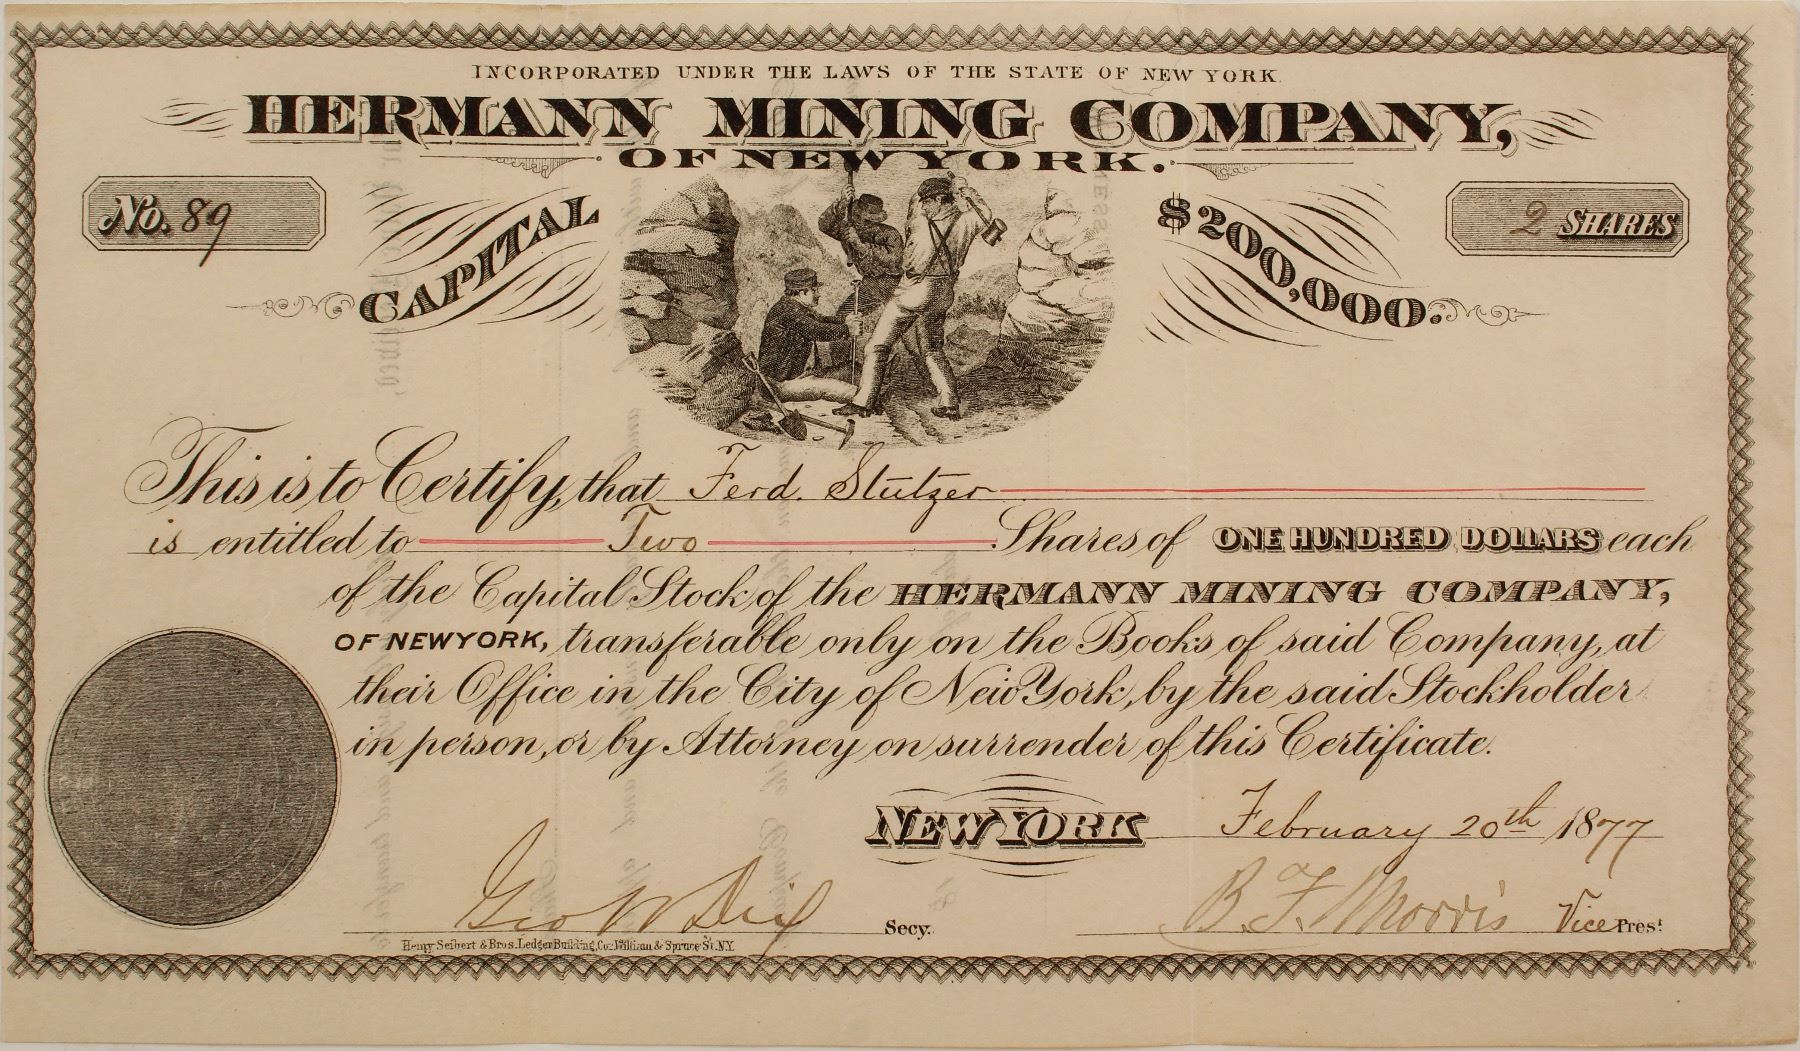 INCORPORATED UNDER THE LAWS OF THE STATE OF NEW YORK.
HERMANN MINING COMPANY,
OF NEW YORK.
No. 89
CAPITAL
$200,000.
2 SHARES
This is to Certify, that Ferd. Stutzer
is entitled to Two Shares of ONE HUNDRED DOLLARS each
of the Capital Stock of the HERMANN MINING COMPANY,
OF NEW YORK, transferable only on the Books of said Company, at
their Office in the City of New York, by the said Stockholder
in person, or by Attorney on surrender of this Certificate.
NEW YORK February 20th 1877
Geo W Secy. B. F. Morris Vice Prest
Henry Seibert & Bros. Ledger Building, Cor. William & Spruce St. N.Y.